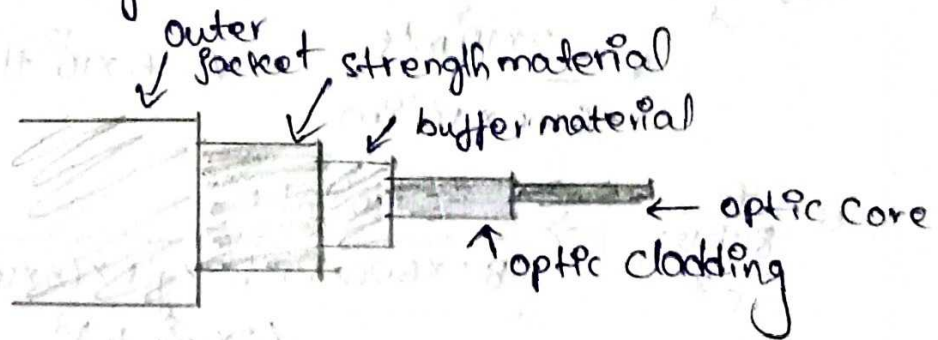 outer
jacket
strength material
buffer material
optic core
optic cladding